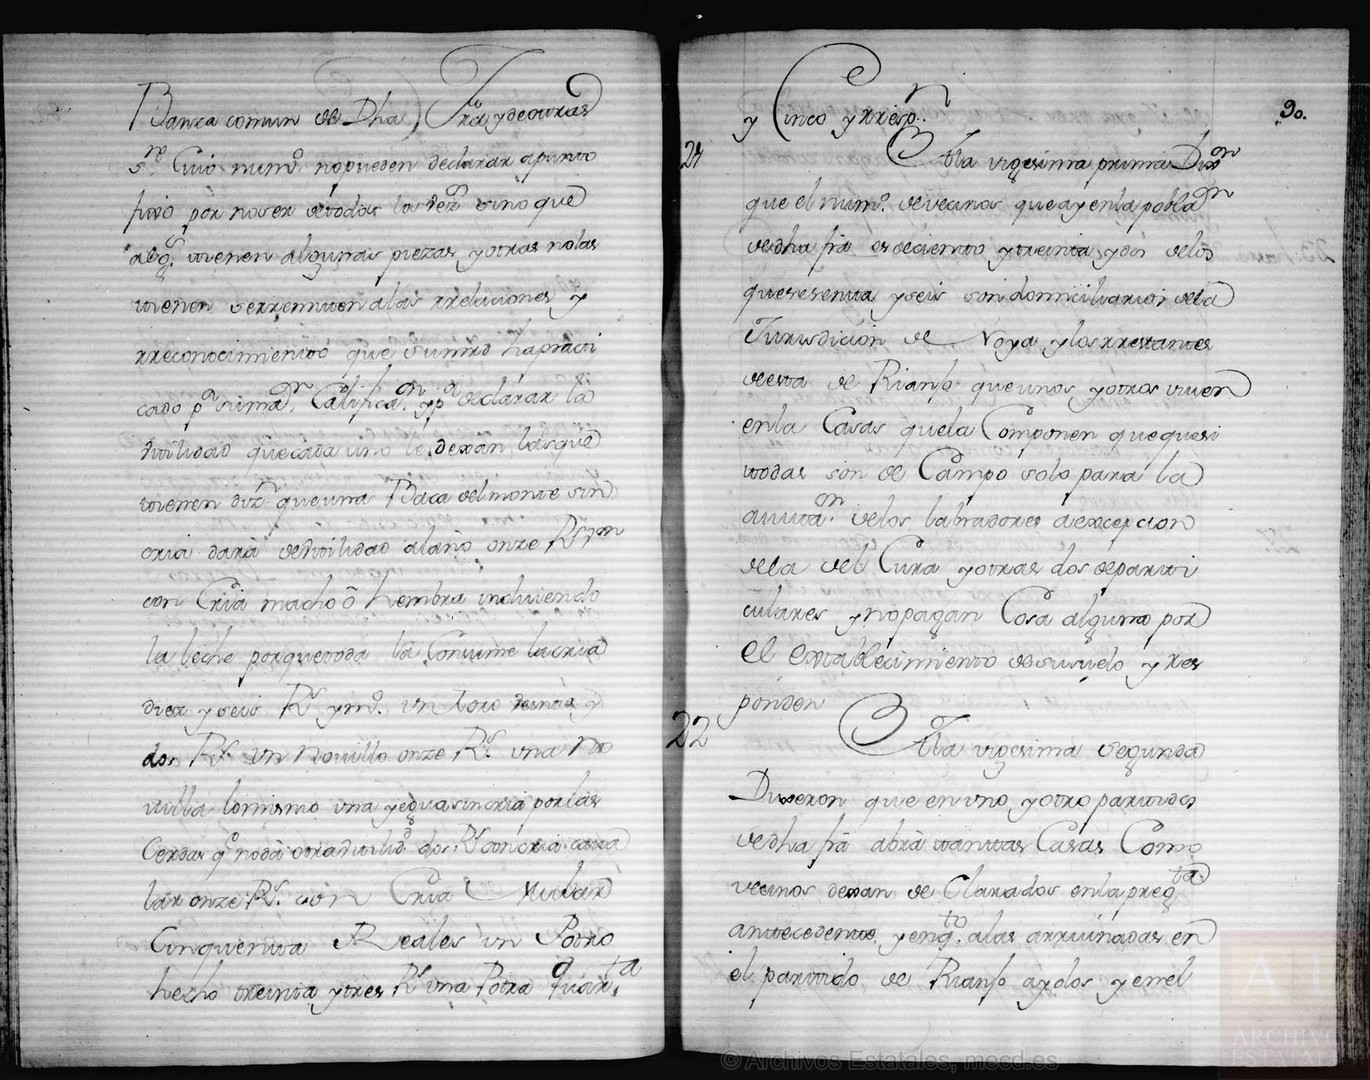 Banza comun de Dha, Frã y de otras
s.re Cuio num.o no pueden declarar apunto
fixo por no ser de todos los vez.s sino que
alg.s tienen algunas piezas y otras no las
tienen serremiten a las rrelaciones y
rreconocimiento que sumrd hapracti
cado p.a suma.on, Califica.on y p.a declarar la
vtilidad que cada uno le dexan las que
tienen diz.n que una Baca del monte sin
cria dará de vtilidad al año onze R.s v.on
con Cria macho ô hembra incluiendo
la leche porque toda la Consume la cria
diez y seis R.s y m.o vn toro treinta y
dos R.s vn Novillo onze R.s vna No
villa lo mismo, vna yegua sin cria por las
Cerdas q.e no da otra vtilid.d dos R.s con cria cava
lar onze R.s con Cria Mular
Cinquenta Reales vn Potro
hecho treinta y tres R.s vna Potra quar.ta
90.
y Cinco y rresp.n
21 A la vigesima prima Dix.on
que el num.o de vecinos que ay en la pobla.on
de dha frã es de ciento y treinta y dos de los
que sesenta y seis son domiciliarios de la
Jurisdicion de Noya y los rrestantes
de esta de Rianjo que unos y otros viven
en la Casas que la Componen que quasi
todas son de Campo solo para la
avita.on de los labradores a excepcion
de la del Cura y otras dos de parti
culares y no pagan Cosa alguna por
el establecimiento de su suelo y res
ponden
22 A la vigesima segunda
Dixeron que en vno y otro partidos
de dha frã abrá tantas Casas Como
vecinos dexan de Clarados en la preg.ta
antecedente, y enq.to a las arruinadas en
el partido de Rianjo ay dos y en el
© Archivos Estatales, mecd.es
ARCHIVOS
ESTATALES